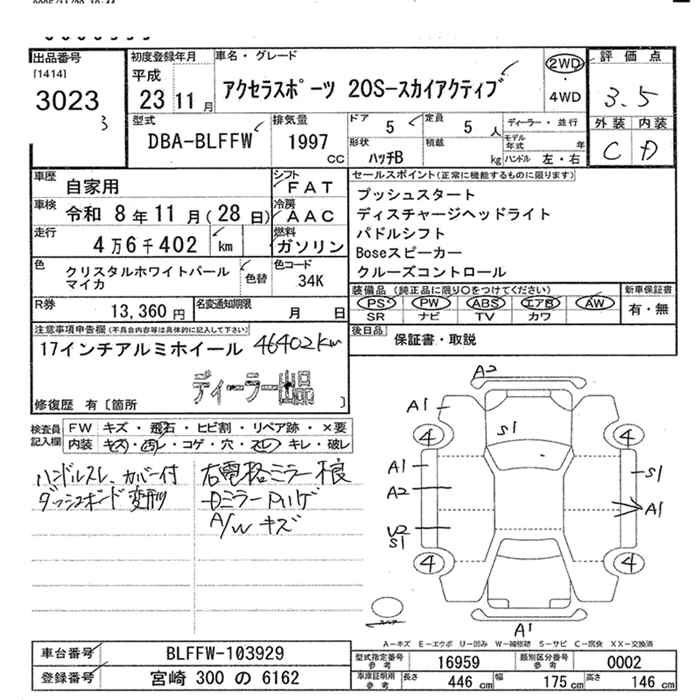 出品番号
[1414]
3023
3
初度登録年月
平成
23年11月
車名・グレード
アクセラスポーツ 20S-スカイアクティブ
2WD
・
4WD
評価点
3.5
外装 内装
C D
型式
DBA-BLFFW
排気量
1997
CC
ドア
5
定員
5 人
形状
ハッチB
積載
kg
ディーラー・並行
モデル年式 年
ハンドル 左・右
車歴 自家用
シフト
FAT
車検 令和 8年11月(28日)
冷房
AAC
走行 4万6千402 km
燃料
ガソリン
色 クリスタルホワイトパール
マイカ
色替
色コード
34K
R券 13,360円
名変通知期限
月 日
セールスポイント(正常に機能するものに限ります)
プッシュスタート
ディスチャージヘッドライト
パドルシフト
Boseスピーカー
クルーズコントロール
装備品(純正品に限り○をつけてください)
PS PW ABS エアB AW
SR ナビ TV カワ
新車保証書
有・無
後日品
保証書・取説
注意事項申告欄(不具合内容等は具体的に記入して下さい)
17インチアルミホイール 46402km
ディーラー出品
修復歴 有〔箇所 〕
検査員
記入欄
FW キズ・飛石・ヒビ割・リペア跡・×要
内装 キズ・汚れ・コゲ・穴・スレ・キレ・破レ
ハンドルスレ、カバー付
ダッシュボード変形
右電格ミラー不良
A/Wキズ
A2
A1
S1
4
4
A1
A2
S1
A1
V2
S1
4
4
A1
スペア
A-キズ E-エクボ U-凹み W-補修跡 S-サビ C-腐食 XX-交換済
車台番号 BLFFW-103929
登録番号 宮崎 300 の 6162
型式指定番号
参考
16959
類別区分番号
参考
0002
車庫証明用
参考
長さ 446 cm
幅 175 cm
高さ 146 cm